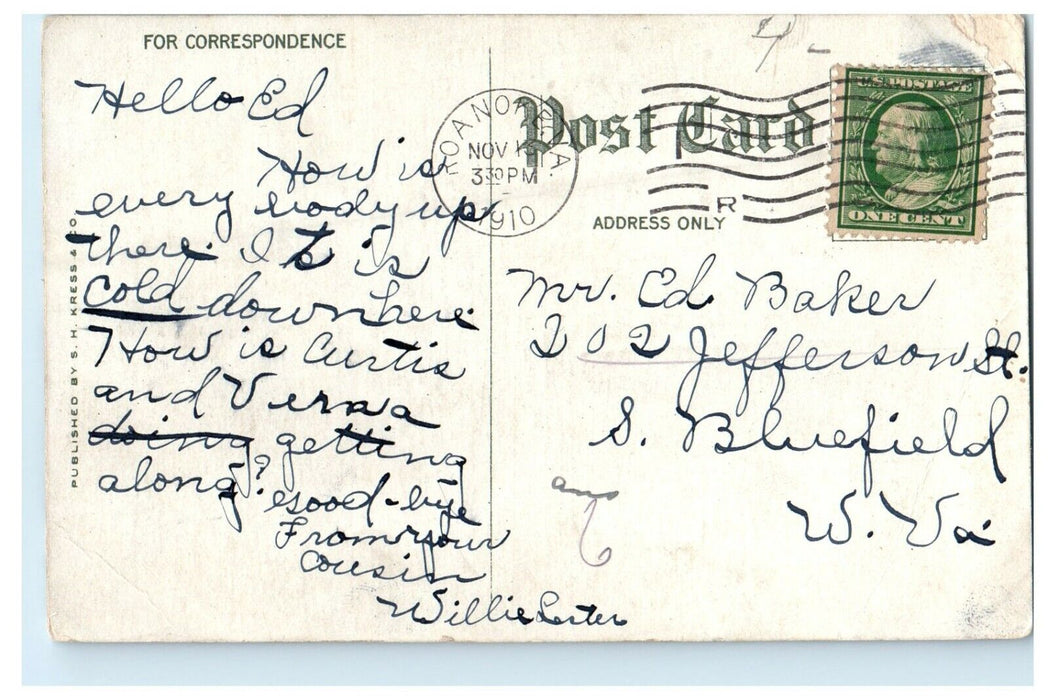 FOR CORRESPONDENCE
Hello Ed
How is
every body up
there. It is
cold down here.
How is Curtis
and Verna
doing getting
along?
Good-bye
From your
Cousin
Willie Lester
PUBLISHED BY S. H. KRESS & CO.
Post Card
ADDRESS ONLY
ROANOKE, VA.
NOV
3 30 PM
1910
R
U.S. POSTAGE
ONE CENT
Mr. Ed. Baker
202 Jefferson St.
S. Bluefield
W. Va
ans